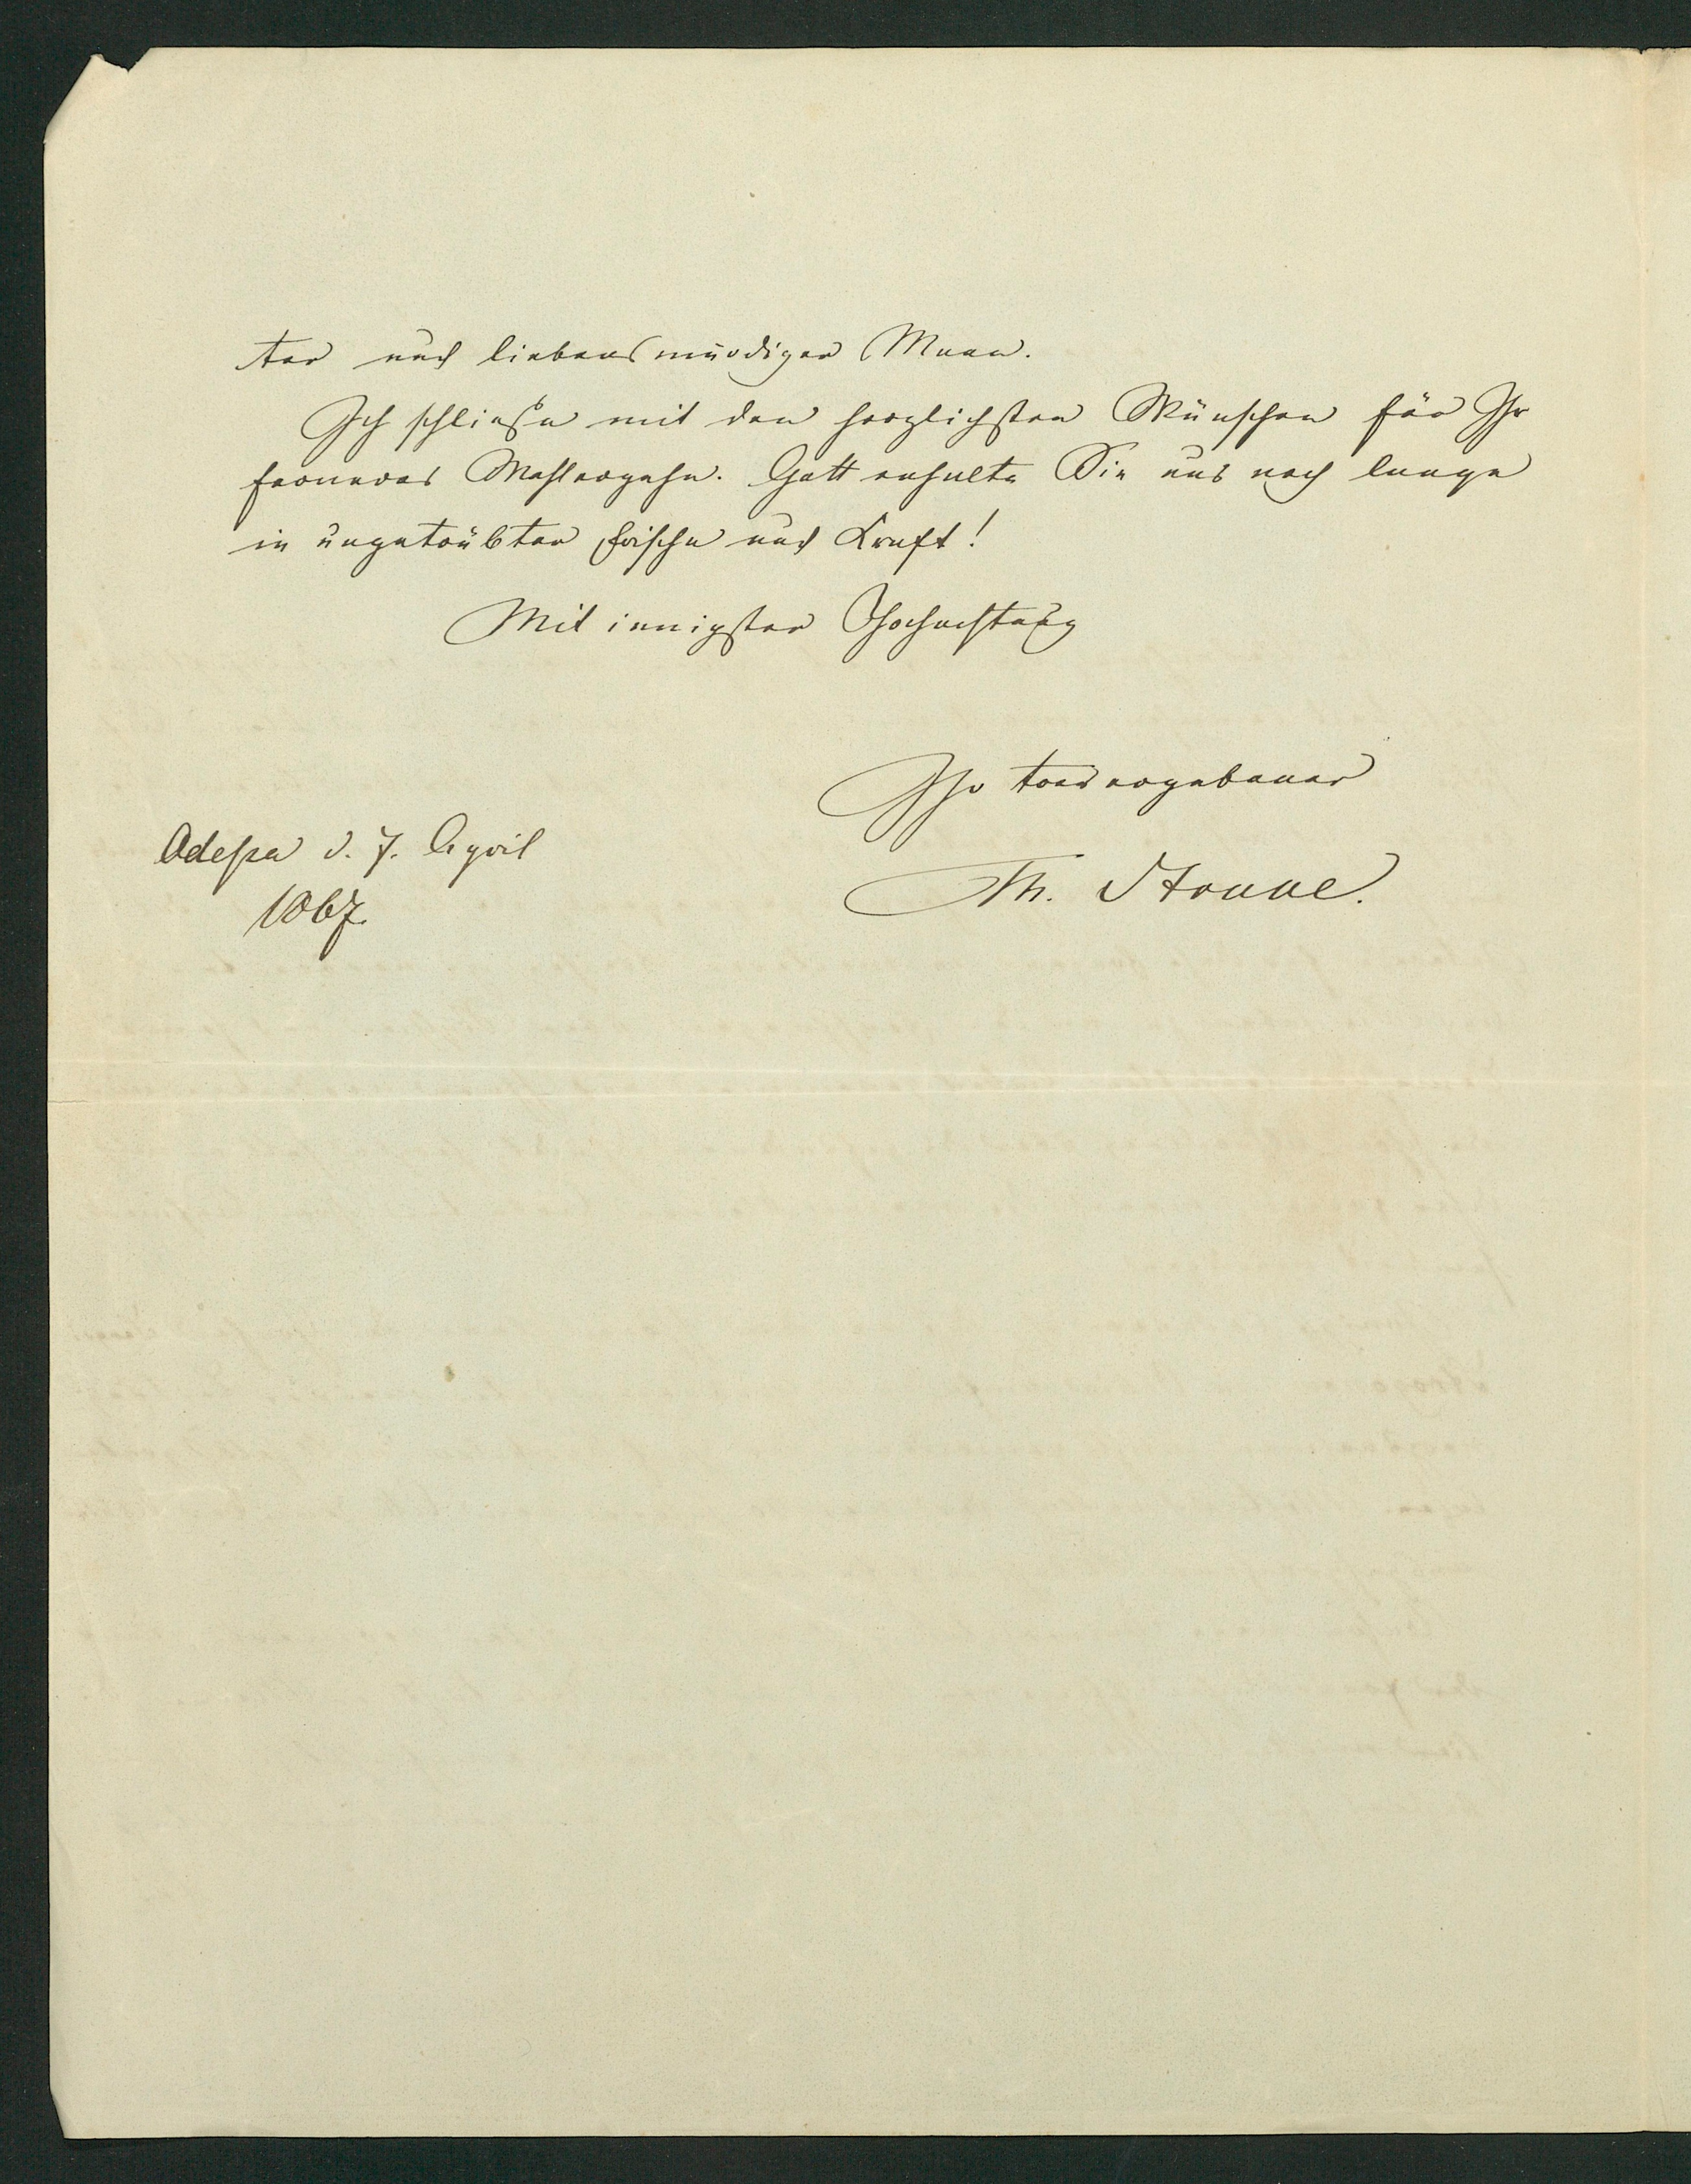 ter und liebenswürdiger Mann.
Ich schließe mit den herzlichsten Wünschen für Ihr
ferneres Wohlergehn. Gott erhalte Sie uns noch lange
in ungetrübter Frische und Kraft!
Mit innigster Hochachtung
Ihr treu ergebener
Th. Stroue.
Odessa d. 7. April
1867.